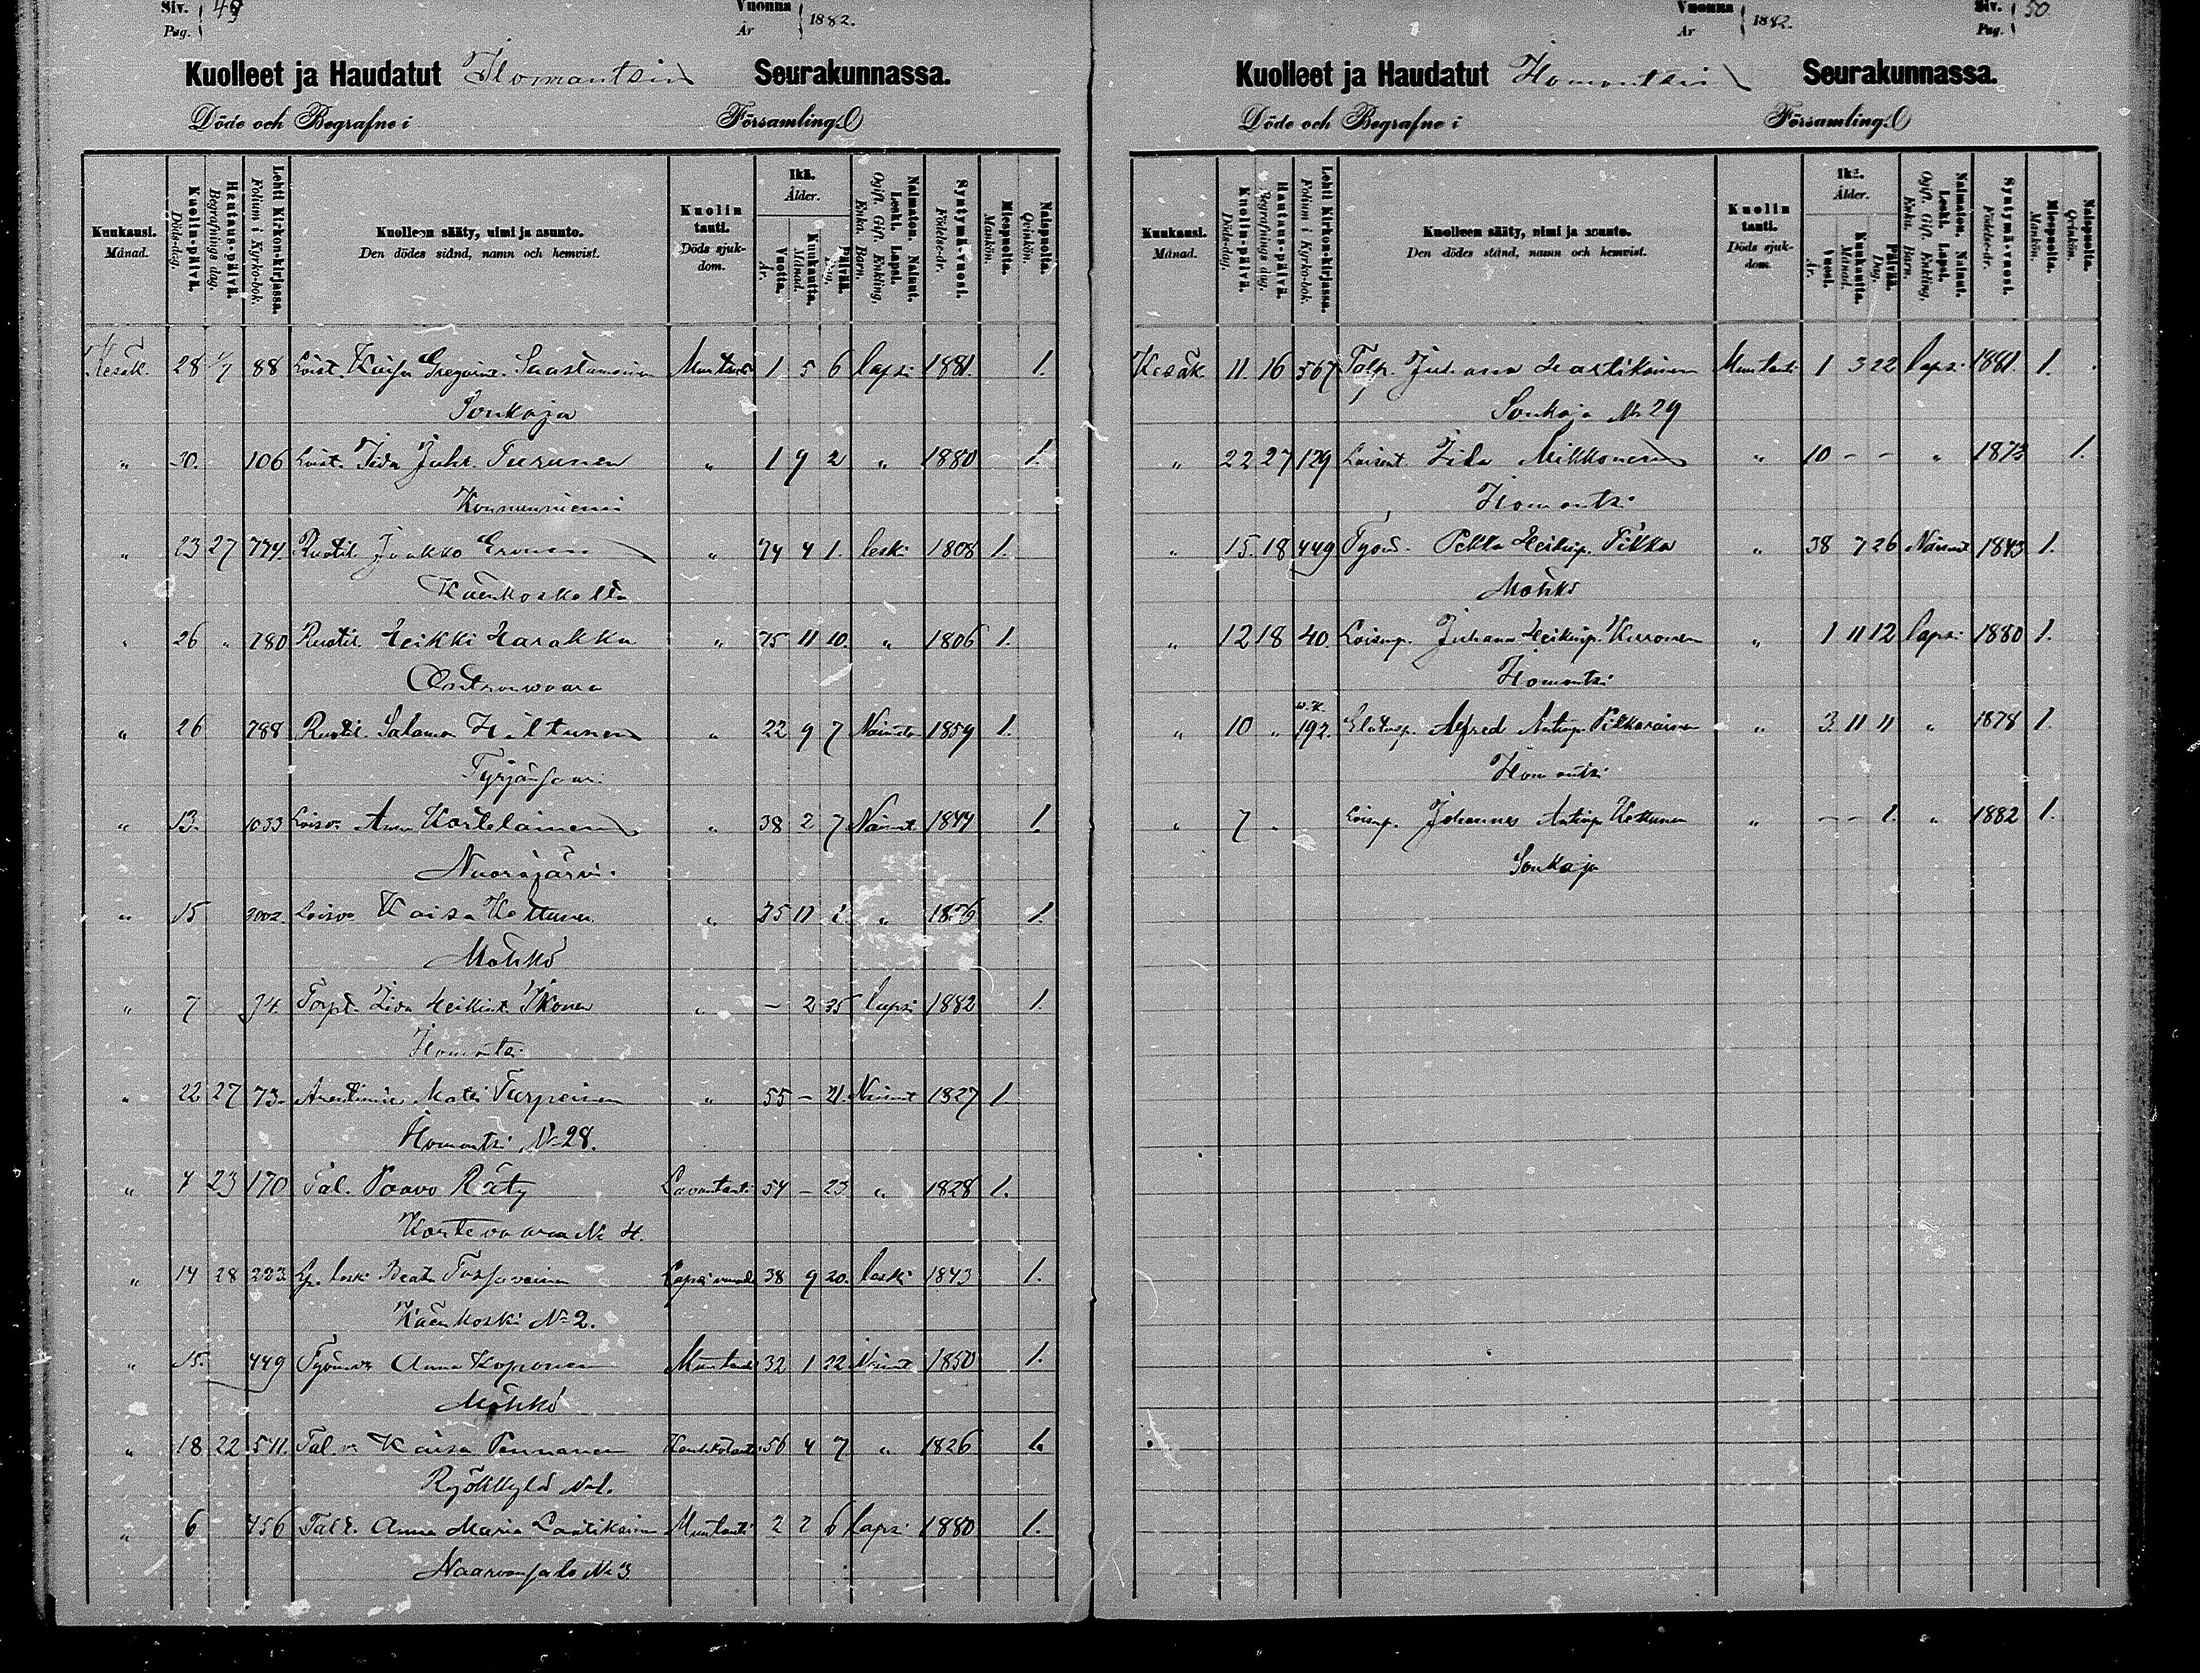 Siv. Pag. 49 Vuonna År 1882.
Kuolleet ja Haudatut Ilomantsin Seurakunnassa.
Döde och Begrafne i Församling.
Kuukausi. Månad. Kuolin-päivä. Döds-dag. Hautaus-päivä. Begrafnings dag. Lehti Kirkon-kirjassa. Folium i Kyrko-bok. Kuolleen sääty, nimi ja asunto. Den dödes stånd, namn och hemvist. Kuolin tauti. Döds sjuk-dom. Ikä. Ålder. Vuotta. År. Kuukautta. Månad. Päivää. Dag. Naimaton. Nainut. Leski. Lapsi. Ogift. Gift. Enkling, Enka. Barn. Syntymä-vuosi. Födelse-år. Miespuolta. Mankön. Naispuolta. Qvinkön.
Kesäk. 28 1/7 88 Loist. Kaisa Saastamoinen 1 5 6 lapsi 1881. 1.
Sonkaja
" 30. 106 Loist. Iida Juhs. Turunen " 1 9 2 " 1880 1.
Konnunniemi
" 23 27 774. Ruotil. Jaakko Eronen " 74 4 1. leski 1808 1.
Käenkoskella
" 26 " 780 Ruotil. Heikki Harakka " 75 11 10. " 1806 1.
" 26 788 Ruotil. Salamo Hiltunen " 22 9 7 1859 1.
Tyrjänsaari
" 13. 1033 Loisv. Anna Kortelainen " 38 2 7 Nainut 1844 1.
Nuorajärvi.
" 15 Loisv. Kaisa Kettunen " 25 11 " 1856 1.
Möhkö
" 7 74. Torpt. Iida Heikint. Ikonen " - 2 25 lapsi 1882 1.
Ilomantsi
" 22 27 73. Matti Turpeinen " 55 - 21. Nainut 1827 1
Ilomantsi No 28.
" 4 23 170 Tal. Paavo Räty Lavantauti 54 - 23 " 1828 1.
Kortevaara No 4.
" 14 28 223. Lp. leski Beata Tarjavainen 38 9 20. leski 1843 1.
Käenkoski No 2.
" 15. 449 Työmv. Anna Koponen Muu tauti 32 1 22 Nainut 1850 1.
Möhkö
" 18 22 511. Tal. v. Kaisa Pennanen 56 4 7 " 1826 1.
Ryökkylä No 1.
" 6 456 Tal t. Anna Maria Laatikainen Muu tauti 2 2 6 lapsi 1880 1.
Naarvansalo No 3
Vuonna År 1882. Siv. Pag. 50.
Kuolleet ja Haudatut Ilomantsin Seurakunnassa.
Döde och Begrafne i Församling.
Kuukausi. Månad. Kuolin-päivä. Döds-dag. Hautaus-päivä. Begrafnings dag. Lehti Kirkon-kirjassa. Folium i Kyrko-bok. Kuolleen sääty, nimi ja asunto. Den dödes stånd, namn och hemvist. Kuolin tauti. Döds sjuk-dom. Ikä. Ålder. Vuosi. År. Kuukautta. Månad. Päivää. Dag. Naimaton. Nainut. Leski. Lapsi. Ogift. Gift. Enkling, Enka. Barn. Syntymä-vuosi. Födelse-år. Miespuolta. Mankön. Naispuolta. Qvinkön.
Kesäk 11. 16 567 Talp. Juhana Hartikainen Muu tauti 1 3 22 lapsi 1881. 1.
Sonkaja No 29
" 22 27 129 Iida Mikkonen " 10 - - " 1873 1.
Ilomantsi
" 15. 18 449 Työm. Pekka Heikinp. Tikka " 38 7 26 Nainut 1843 1.
Möhkö
" 12 18 40. Loismp. Juhana Heikinp. Kurronen " 1 11 12 lapsi 1880 1.
Ilomantsi
" 10 " 192. Alfred Antinp. Pitkäräinen " 3. 11 11 " 1878 1.
Ilomantsi
" 7 " Loismp. Johannes Antinp. Kettunen " - - 1. " 1882 1.
Sonkaja